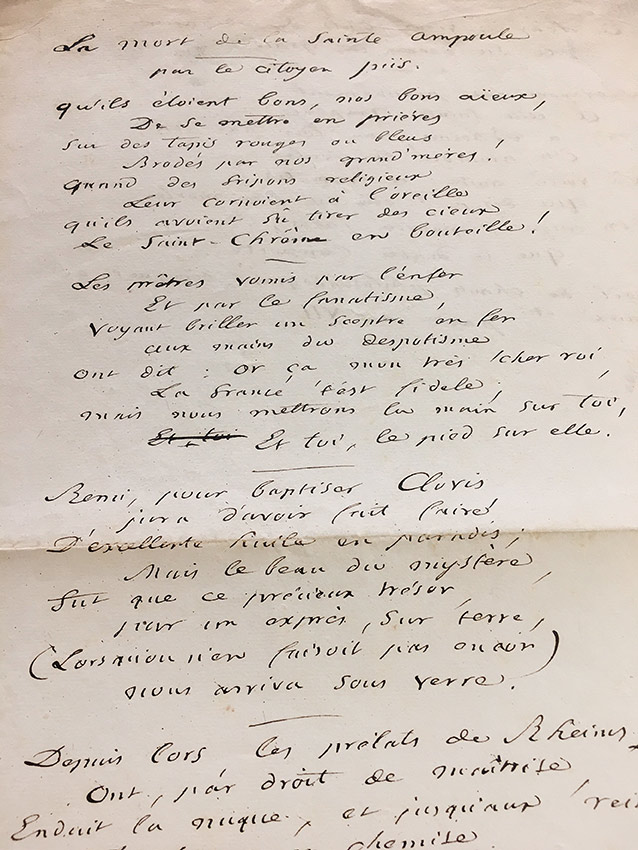 La mort de la Sainte ampoule
par le citoyen piis.
qu'ils étoient bons, nos bons aïeux,
De se mettre en prières
Sur des tapis rouges ou bleus
Brodés par nos grand'mères !
quand des fripons religieux
Leur cornoient à l'oreille
qu'ils avoient sû tirer des cieux
Le Saint-Chrême en bouteille !
Les prêtres vomis par l'enfer
Et par le fanatisme,
Voyant briller un sceptre en fer
aux mains du despotisme
Ont dit : Or ça mon très cher roi,
La france t'est fidele ;
mais nous mettrons la main sur toi,
Et toi Et toi, le pied sur elle.
Remi, pour baptiser Clovis
jura d'avoir fait faire
D'excellente huile en paradis ;
Mais le beau du mystère,
fut que ce précieux trésor,
par un exprès, sur terre,
(Lorsqu'on n'en faisoit pas encor)
nous arriva sous verre.
Depuis lors les prélats de Rheims
Ont, par droit de maîtrise
Enduit la nuque, et jusqu'aux
chemise